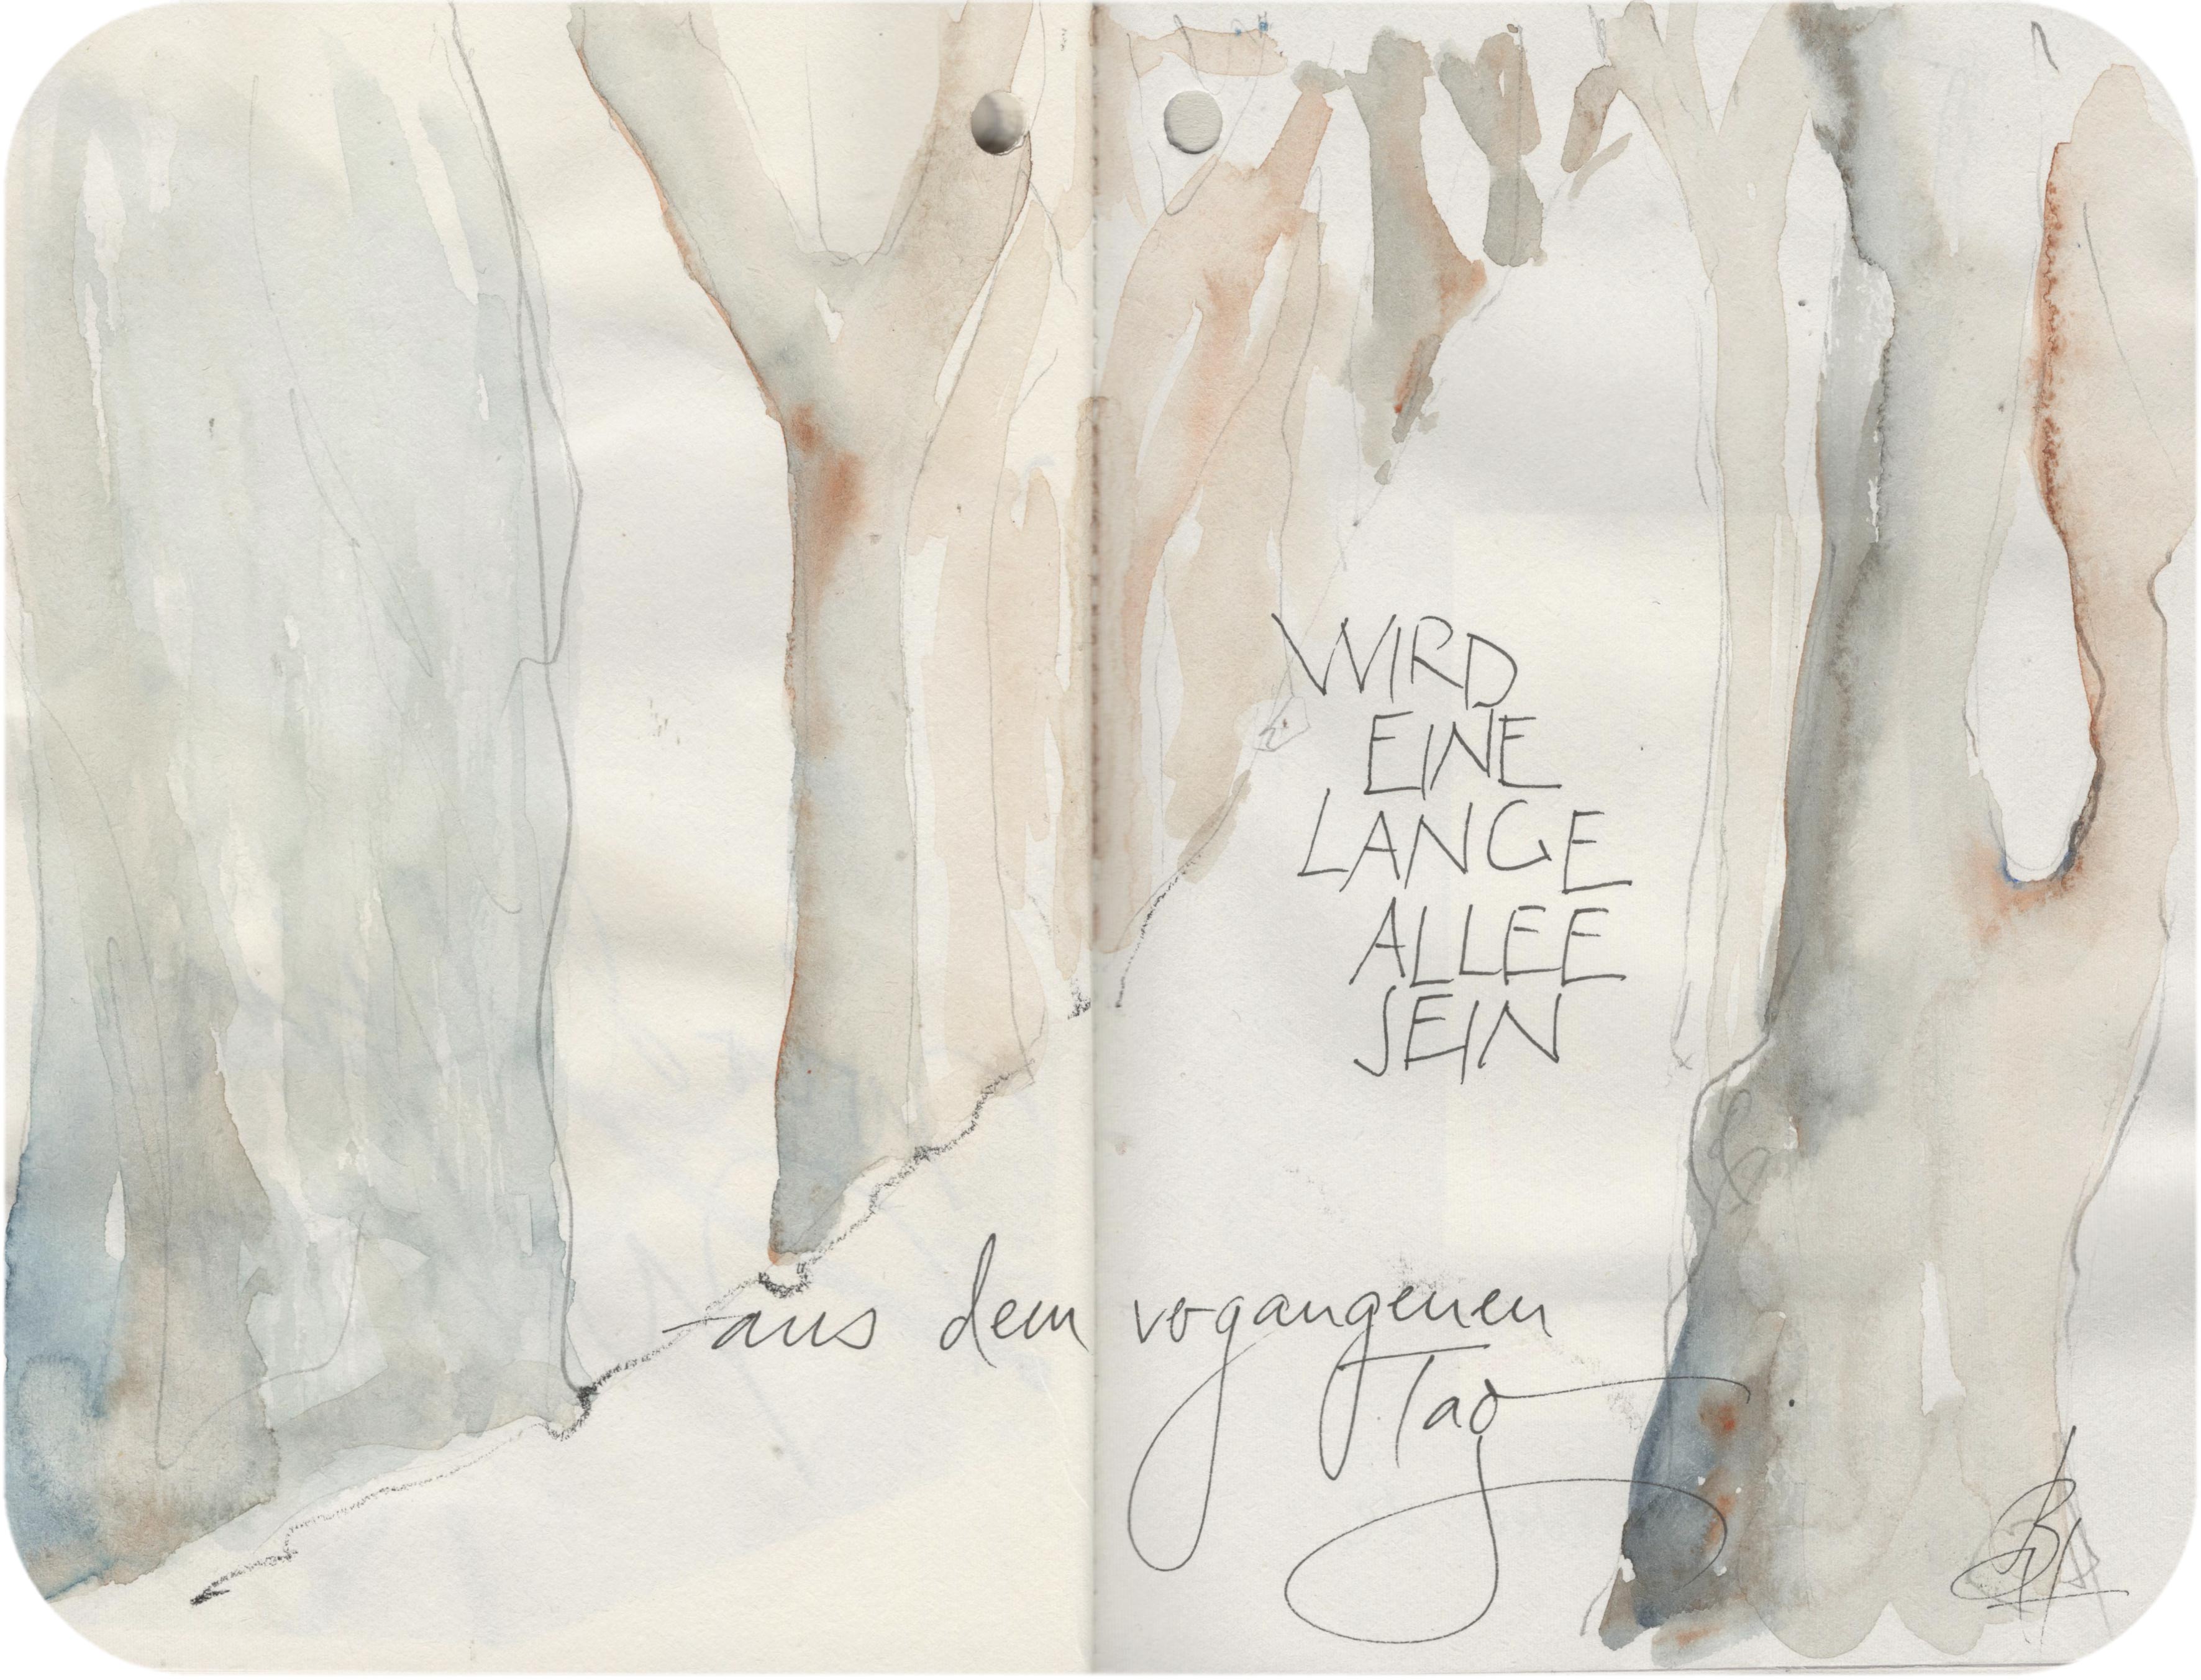 WIRD
EINE
LANGE
ALLEE
SEIN
aus dem vogangenen
Tag